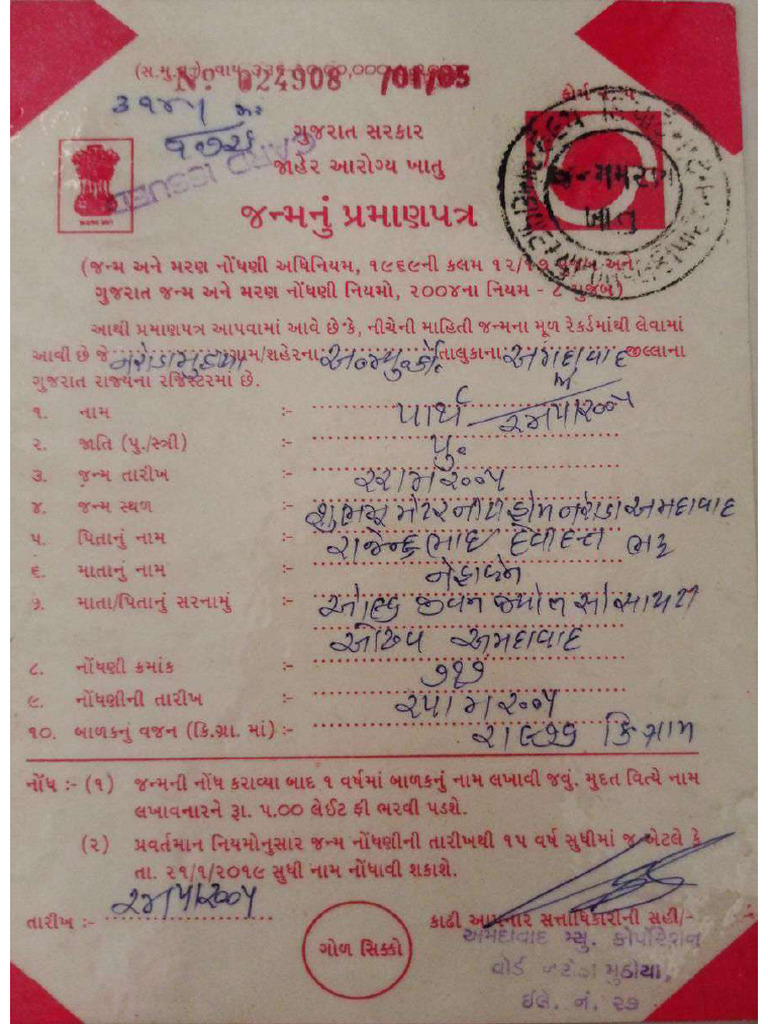 (સ.મુ.સુ.) વાય
Nº 024908 /01/05
ગુજરાત સરકાર
CARD ISSUED
જાહેર આરોગ્ય ખાતુ
જન્મનું પ્રમાણપત્ર
જન્મમરણ
ખાતુ
(જન્મ અને મરણ નોંધણી અધિનિયમ, ૧૯૬૯ની કલમ ૧૨/૧૭ મુજબ અને
ગુજરાત જન્મ અને મરણ નોંધણી નિયમો, ૨૦૦૪ના નિયમ - ૮ મુજબ)
આથી પ્રમાણપત્ર આપવામાં આવે છે કે, નીચેની માહિતી જન્મના મૂળ રેકર્ડમાંથી લેવામાં
આવી છે જે નરોડા મુઠીયા ગામ/શહેરના અ.મ્યુ.કો. તાલુકાના અમદાવાદ જીલ્લાના
ગુજરાત રાજ્યના રજિસ્ટરમાં છે.
૧. નામ :- પાર્થ
૨. જાતિ (પુ./સ્ત્રી) :- પુ.
૩. જન્મ તારીખ :-
૪. જન્મ સ્થળ :- મેટરનીટી હોમ નરોડા અમદાવાદ
૫. પિતાનું નામ :- રાજેન્દ્રભાઇ દેવીદત્ત ભટ્ટ
૬. માતાનું નામ :-
૭. માતા/પિતાનું સરનામું :- જીવન જ્યોત સોસાયટી
ઓઢવ અમદાવાદ
૮. નોંધણી ક્રમાંક :- ૭૧૭
૯. નોંધણીની તારીખ :-
૧૦. બાળકનું વજન (કિ.ગ્રા. માં) :- કિગ્રામ
નોંધ :- (૧) જન્મની નોંધ કરાવ્યા બાદ ૧ વર્ષમાં બાળકનું નામ લખાવી જવું. મુદત વિત્યે નામ
લખાવનારને રૂા. ૫.૦૦ લેઈટ ફી ભરવી પડશે.
(૨) પ્રવર્તમાન નિયમોનુસાર જન્મ નોંધણીની તારીખથી ૧૫ વર્ષ સુધીમાં જ એટલે કે
તા. ૨૧/૧/૨૦૧૯ સુધી નામ નોંધાવી શકાશે.
તારીખ :-
કાઢી આપનાર સત્તાધિકારીની સહી/-
ગોળ સિક્કો
અમદાવાદ મ્યુ. કોર્પોરેશન
વોર્ડ નરોડા મુઠીયા,
ઈલે. નં. ૨૭